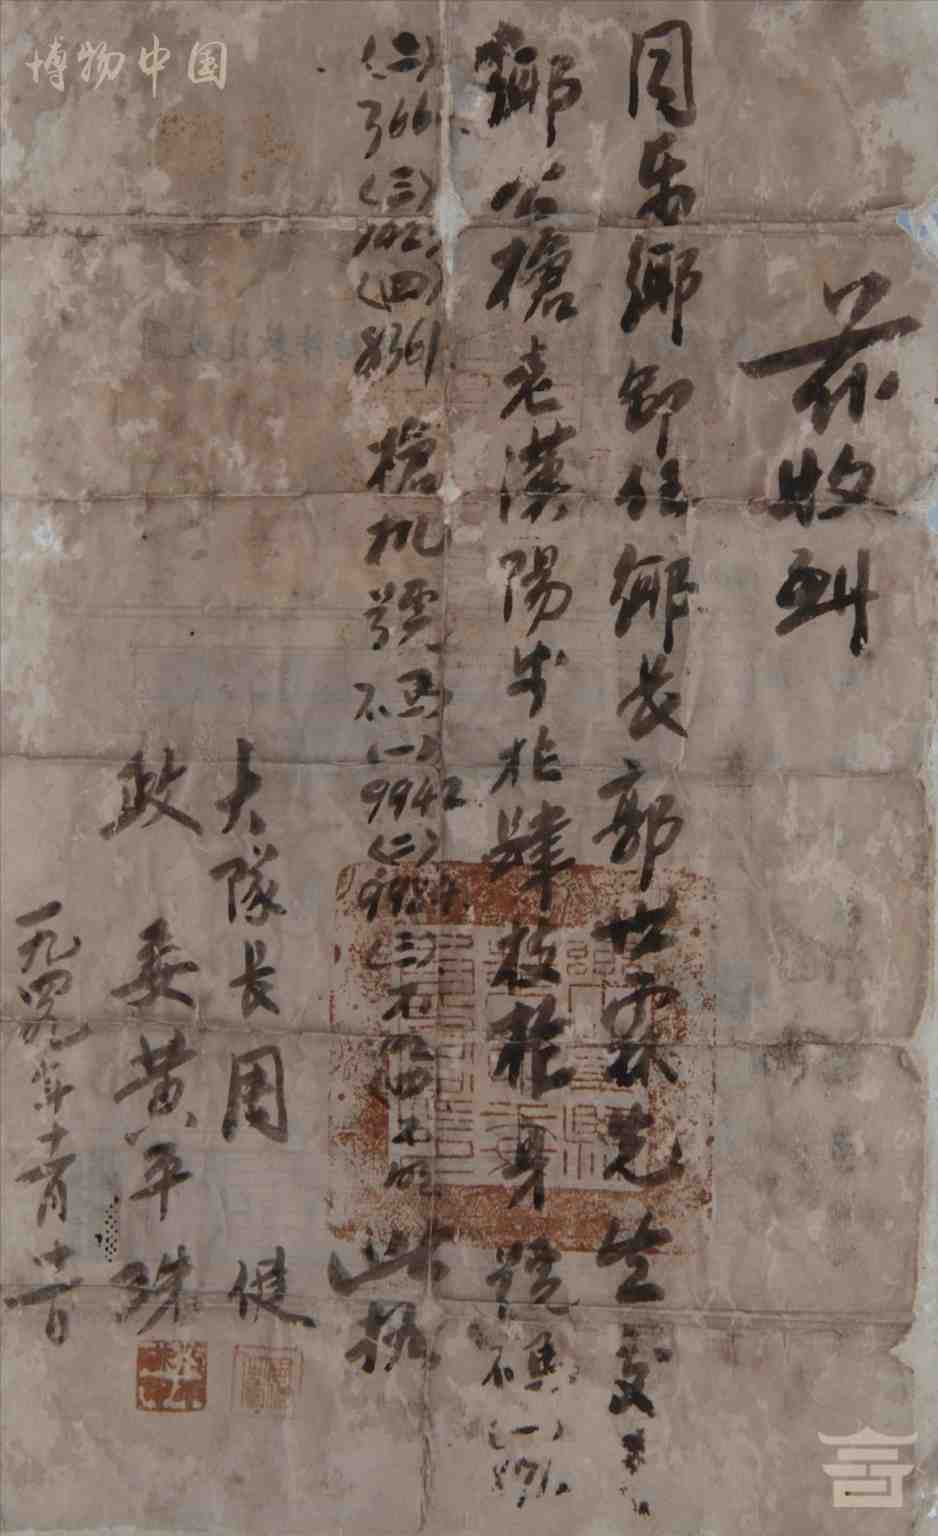 博物中国
茲收到
同乐鄉卸任鄉長郭世霖先生交来
鄉公槍老漢陽步枪肆枝枪身號碼(一)871.
(二)3661.(三)1423(四)8361. 槍机號碼(一)9942(二)9924.(三)不明(四)不明 此据
大隊長周 健
政 委黄平 珠
一九四九年十二月廿一日